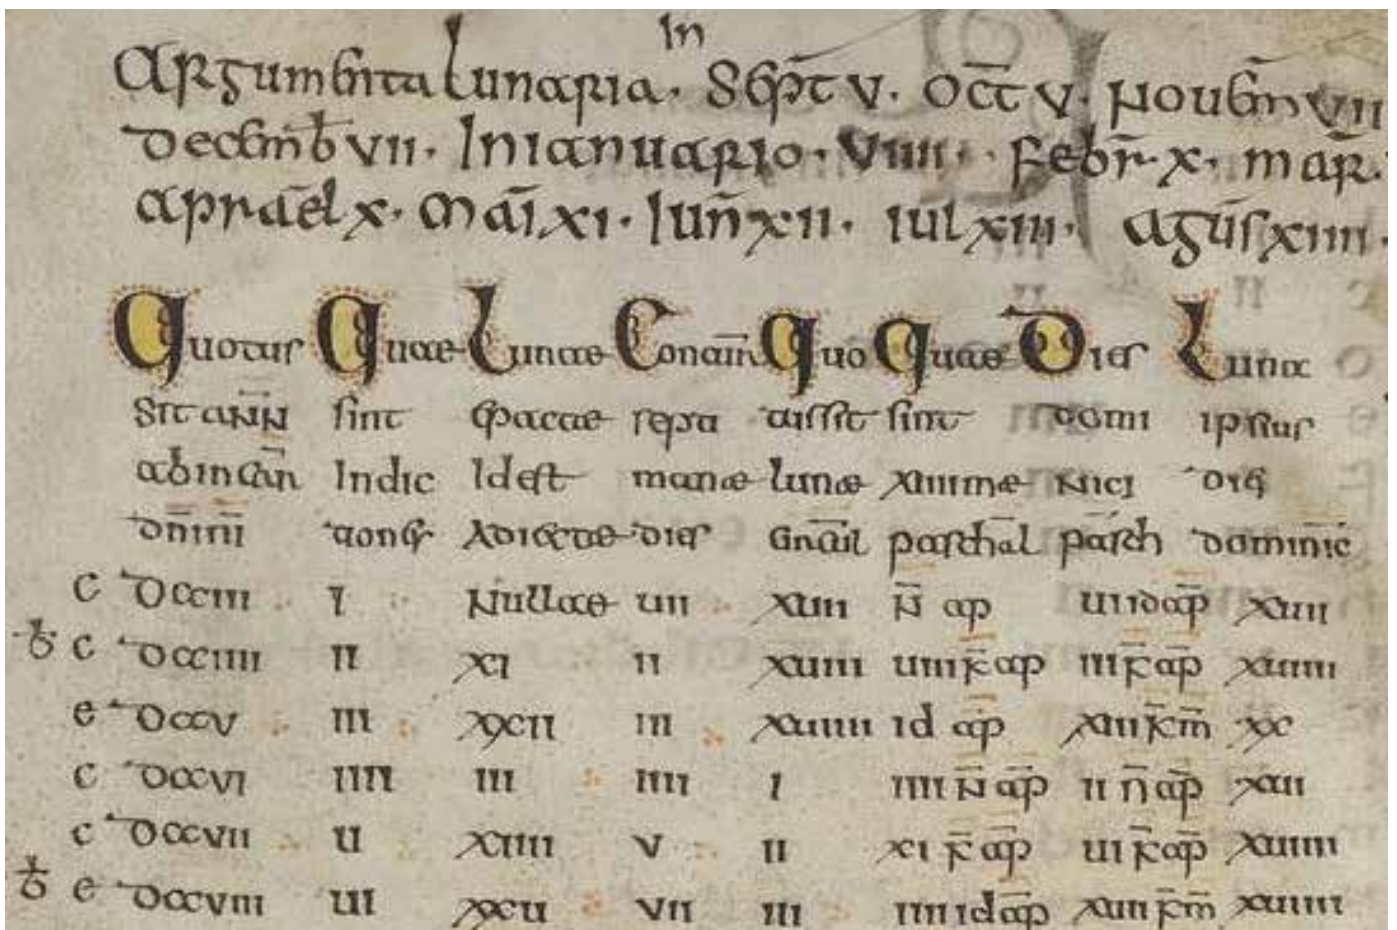 In
Argumenta lunaria · Sept̄ v · Oc̄t v · Nouem̄ vii
Decemb̄ vii · In ianuario · viiii · Febr̄ · x · mar̄ ·
apraēl x · Maī xi · Iun̄ xii · iul xiii · aḡus xiiii ·
Quotus Quae Lunae Concur̄ Quo Quae Dies Luna
Sit anñ sint epactae septi ipsius
ab incar̄n Indic Idest manae lunae xiiiimae nici diei
dn̄ini tiones Adiectae dies paschāl pāsch dominīc
c dcciii i Nullae uii xuiii N̄ ap̄ uii id ap̄ xuii
b c dcciiii ii xi ii xuiiii uiiii k̄ ap̄ iii k̄ ap̄ xuiiii
e dccv iii xxii iii xuiiii id ap̄ xiii k̄ m̄ xx
c dccvi iiii iii iiii i iiii N̄ ap̄ ii n̄ ap̄ xuii
c dccvii u xiiii v ii xi k̄ ap̄ ui k̄ ap̄ xuiiii
b e dccviii ui xxu vii iii iiii id ap̄ xuii k̄ m̄ xuiiii